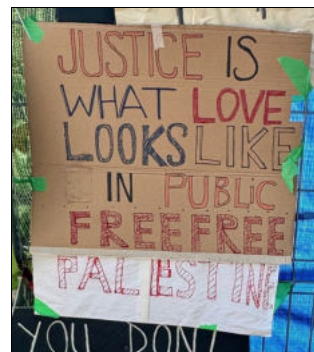 JUSTICE IS
WHAT LOVE
LOOKS LIKE
IN PUBLIC
FREE FREE
PALESTINE
YOU DON'